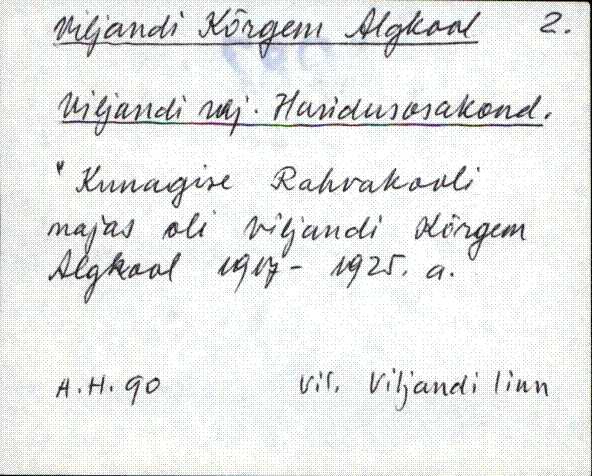 Viljandi Kõrgem Algkool 2.
Viljandi raj. Haridusosakond.
" Kunagise Rahvakooli
majas oli Viljandi Kõrgem
Algkool 1917 - 1925. a.
A.H. 90 Vil. Viljandi linn